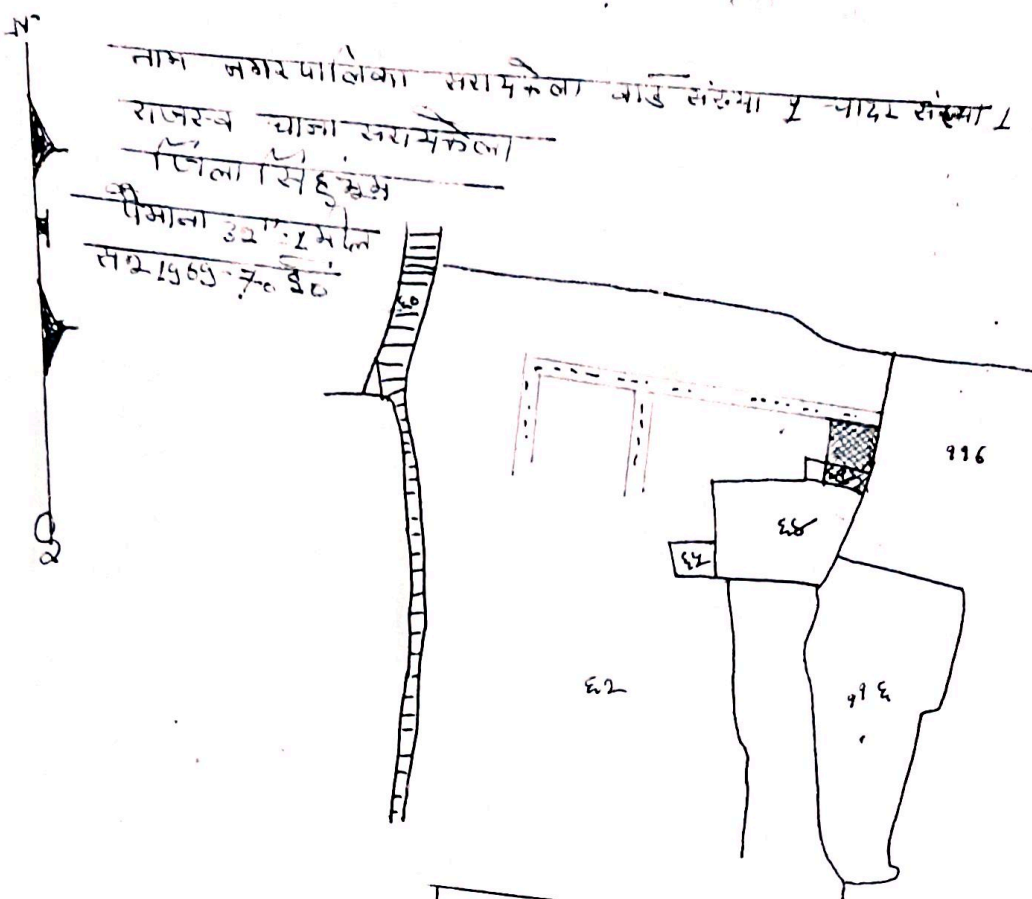 N
नाम नगरपालिका सरायकेला वार्ड संख्या 1 चादर संख्या 1
राजस्व थाना सरायकेला
जिला सिंहभूम
पैमाना 32"=1 मील
सन् 1969-70 ई०
६०
११७
६४
६२
११६